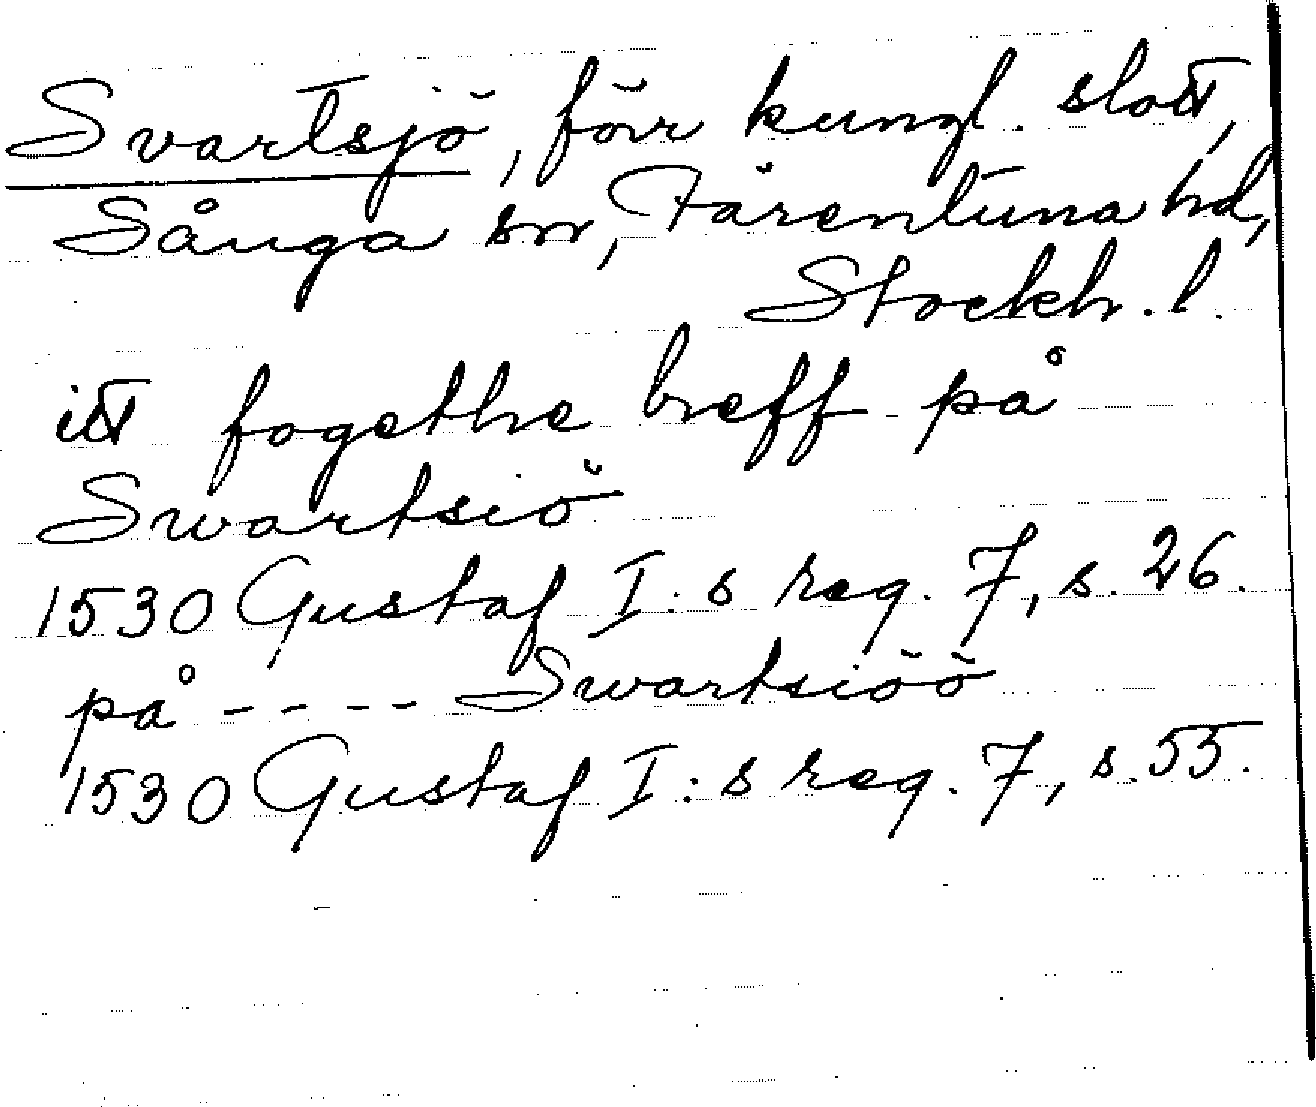 Svartsjö, förr kungl. slott,
Sånga sn, Färentuna hd,
Stockh. l.
itt fogethe breff på
Swartsiö
1530 Gustaf I:s reg. 7, s. 26.
på ---- Swartsiöö
1530 Gustaf I:s reg. 7, s. 55.